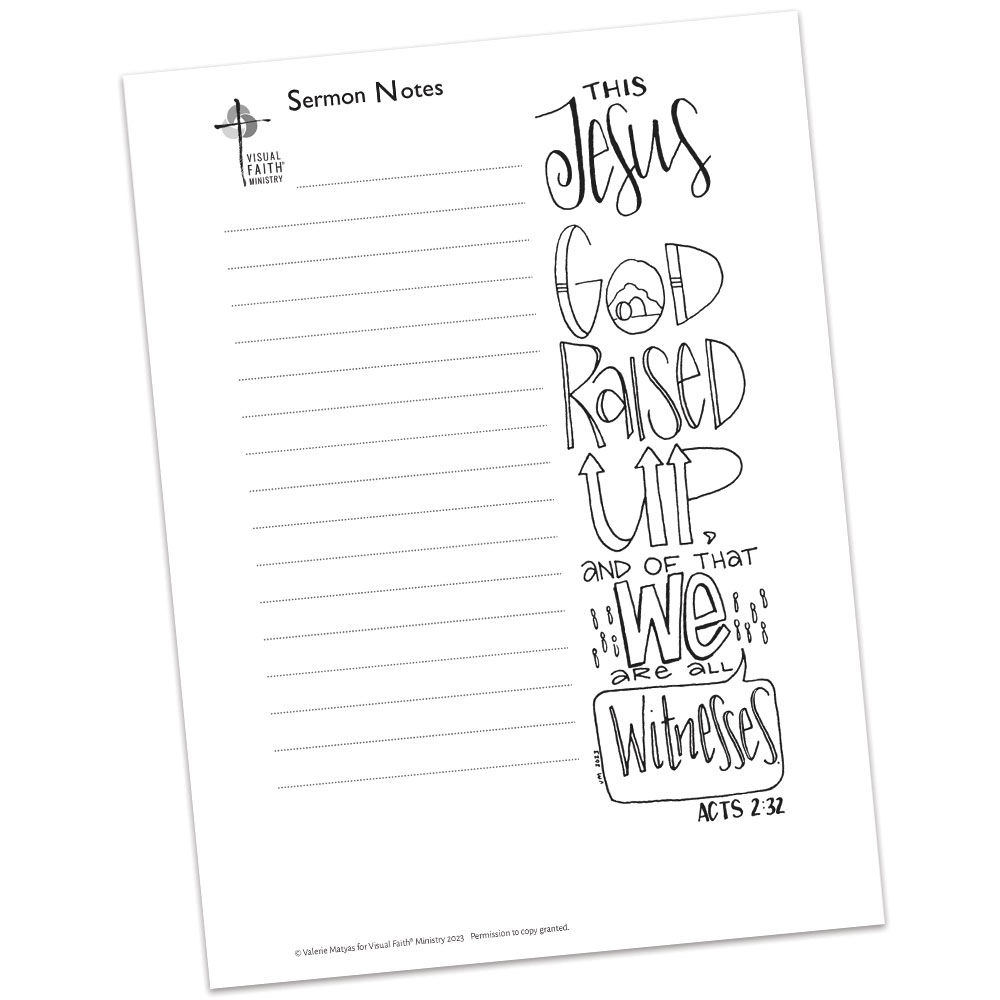 Sermon Notes
VISUAL
FAITH®
MINISTRY
THIS
JeSuS
GOD
RaISeD
UP,
aND OF THaT
We
aRe aLL
WitnesseS.
VM 2023
ACTS 2:32
© Valerie Matyas for Visual Faith® Ministry 2023 Permission to copy granted.